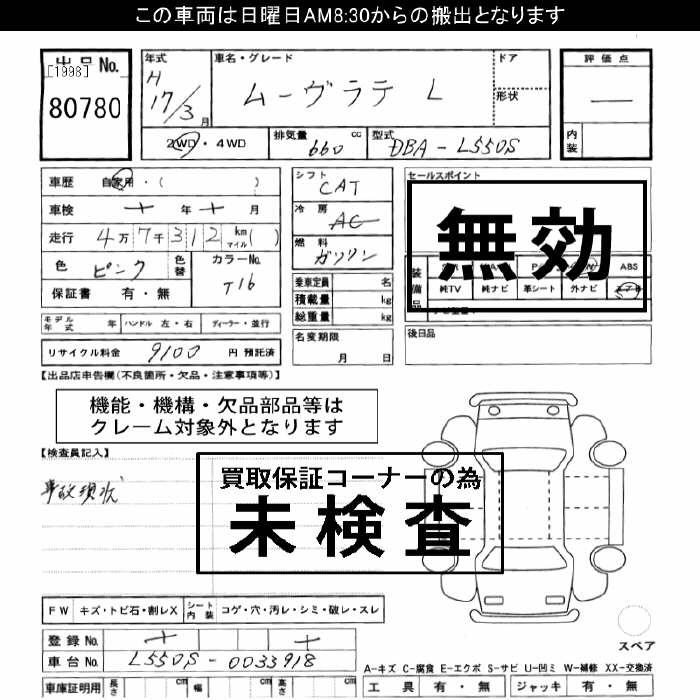 この車両は日曜日AM8:30からの搬出となります
出品No.
[1998]
80780
年式
H
17/3月
車名・グレード
ムーヴラテ L
ドア
形状
評価点
—
内装
2WD・4WD
排気量
660 cc
型式
DBA-L550S
車歴 自家用・( )
車検 年 月
走行 4万7千312 km マイル( )
色 ピンク
色替
カラーNo.
T16
保証書 有・無
シフト
CAT
冷房
AC
燃料
ガソリン
乗車定員 名
積載量 kg
総重量 kg
セールスポイント
無効
装備品
ABS
純TV
純ナビ
革シート
外ナビ
モデル年式 年
ハンドル 左・右
ディーラー・並行
リサイクル料金 9100 円 預託済
名変期限
月 日
後日品
【出品店申告欄(不良箇所・欠品・注意事項等)】
機能・機構・欠品部品等は
クレーム対象外となります
【検査員記入】
事故現状
買取保証コーナーの為
未検査
FW キズ・トビ石・割レX
シート内装 コゲ・穴・汚レ・シミ・破レ・スレ
登録No.
車台No. L550S-0033918
車庫証明用 長さ cm 幅 cm 高さ cm
スペア
A-キズ C-腐食 E-エクボ S-サビ U-凹ミ W-補修 XX-交換済
工具 有・無 ジャッキ 有・無